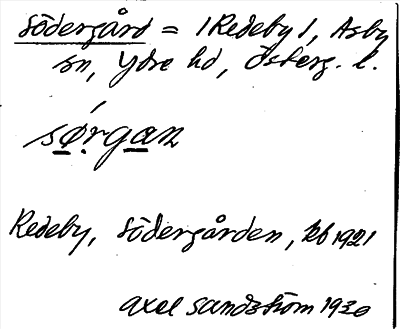 Södergård = | Redeby |, Asby
sn, Ydre hd, Österg. l.
sø̣rgan
Redeby, Södergården, kb 1921
Axel Sandström 1930